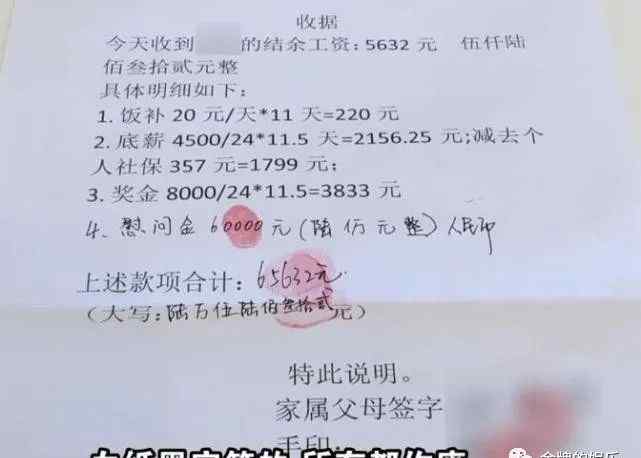 收据
今天收到 的结余工资: 5632 元 伍仟陆
佰叁拾贰元整
具体明细如下:
1. 饭补 20 元/天*11 天=220 元
2. 底薪 4500/24*11.5 天=2156.25 元;减去个
人社保 357 元=1799 元;
3. 奖金 8000/24*11.5=3833 元
4、慰问金 60000元(陆仿元整)人民币
上述款项合计: 65632元.
(大写:陆万伍陆佰叁拾贰元)
特此说明。
家属父母签字
手印: